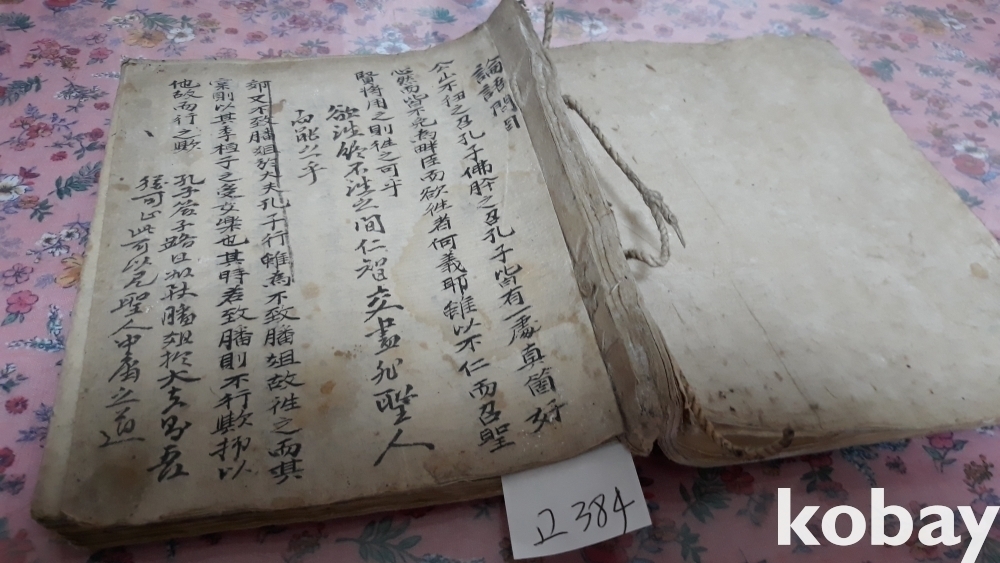 論語問目
公山不狃之召孔子佛肸之召孔子皆有一處真箇好
心然而皆不免為畔臣而欲往者何義耶雖以不仁而召聖
賢將用之則往之可乎
欲往終不往之間仁智交盡非聖人
而能之乎
郊又不致膰俎於大夫孔子行為不致膰俎故往之而其
則以其季桓子之受女樂也其時若致膰則不行歟抑以
他故而行之歟
孔子答子路曰如致膰俎於大夫則吾
猶可止此可以見聖人中庸之道
고 384
kobay